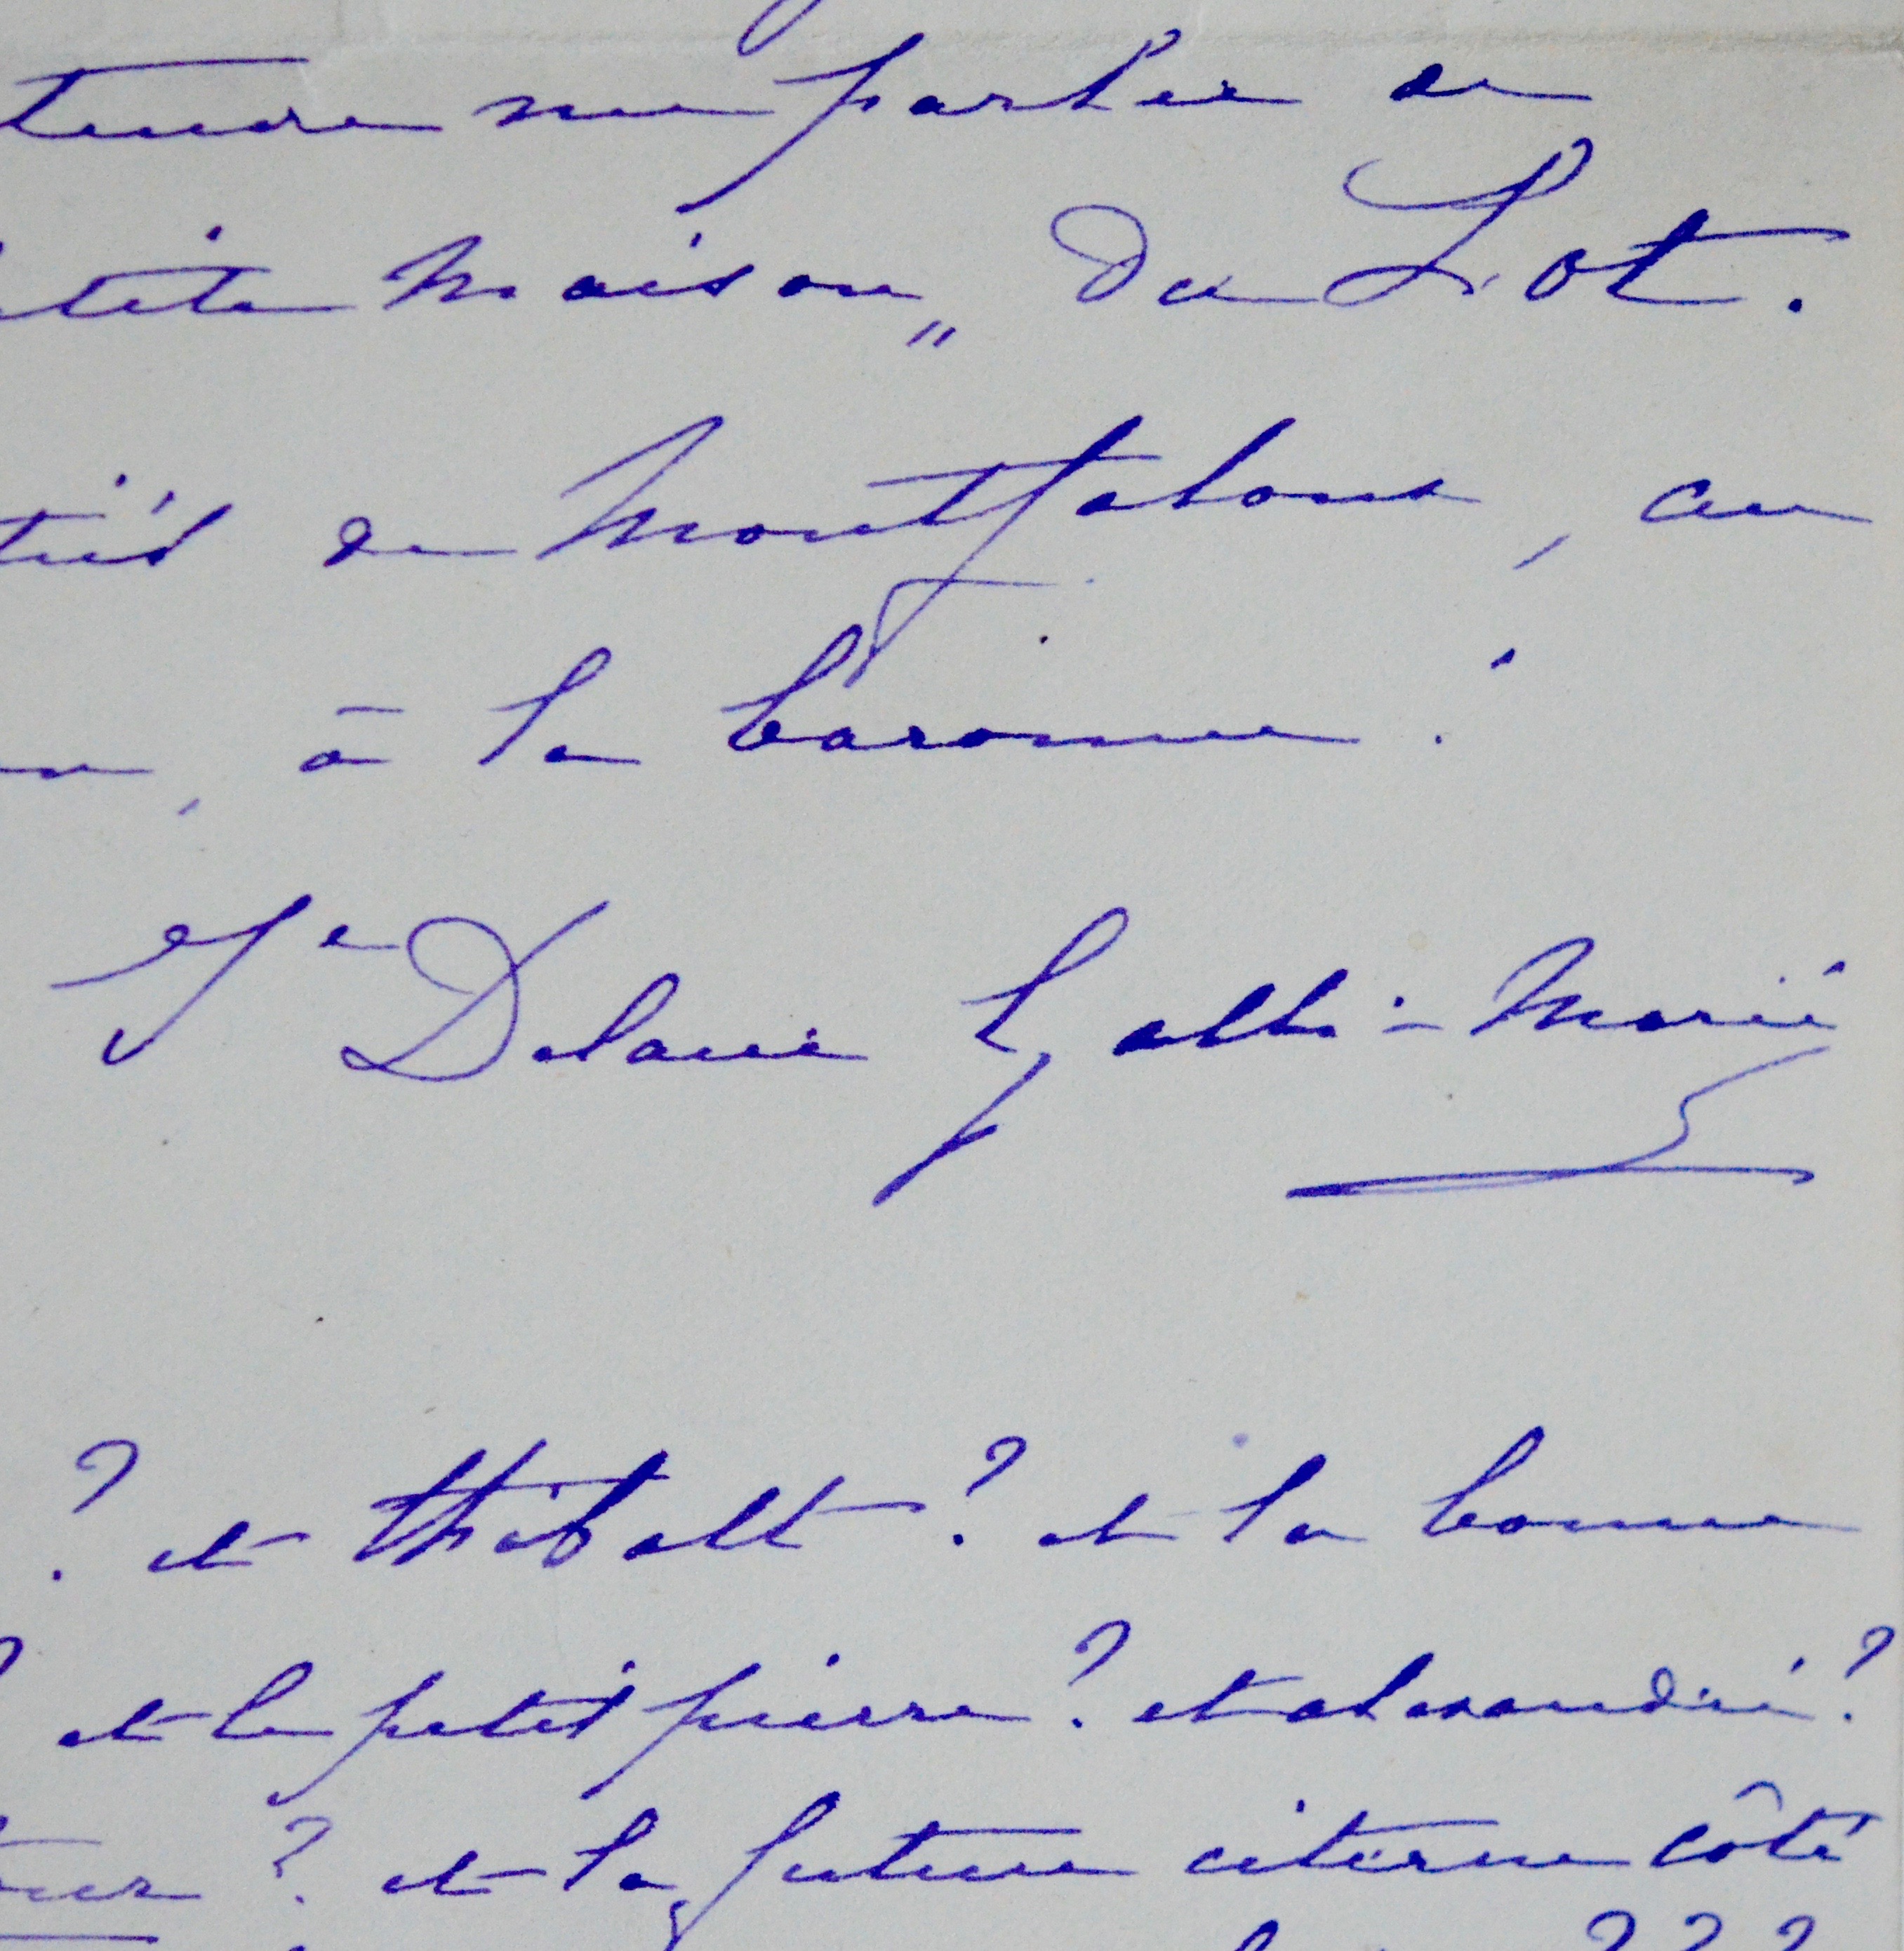 tendre me parler de
petite maison„ du Lot.
de Montfabour, au
, à la baronne!
Galli-Marié
? et thibalt? et la bonne
? et le petit pierre? et alexandrie?
? et la future citerne côté
? ? ?